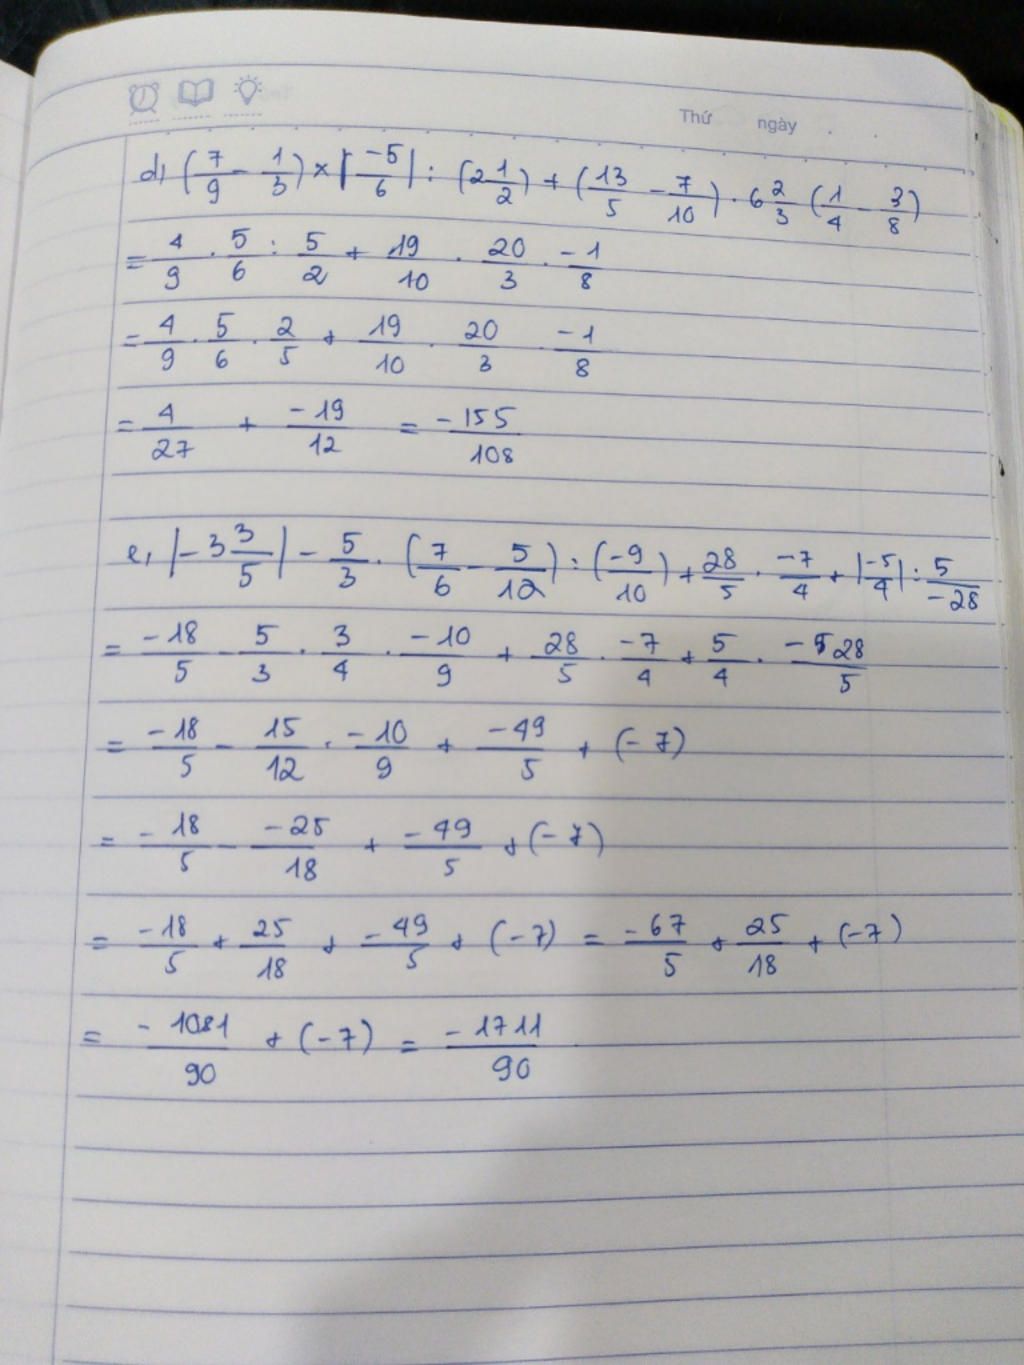 Thứ ngày
d, (7/9 - 1/3) × |-5/6| : (2 1/2) + (13/5 - 7/10) . 6 2/3 (1/4 - 3/8)
= 4/9 . 5/6 : 5/2 + 19/10 . 20/3 . -1/8
= 4/9 . 5/6 . 2/5 + 19/10 . 20/3 . -1/8
= 4/27 + -19/12 = -155/108
e, |-3 3/5| - 5/3 . (7/6 - 5/12) : (-9/10) + 28/5 . -7/4 + |-5/4| : 5/-28
= -18/5 - 5/3 . 3/4 . -10/9 + 28/5 . -7/4 + 5/4 . -28/5
= -18/5 - 15/12 . -10/9 + -49/5 + (-7)
= -18/5 - -25/18 + -49/5 + (-7)
= -18/5 + 25/18 + -49/5 + (-7) = -67/5 + 25/18 + (-7)
= -1081/90 + (-7) = -1711/90